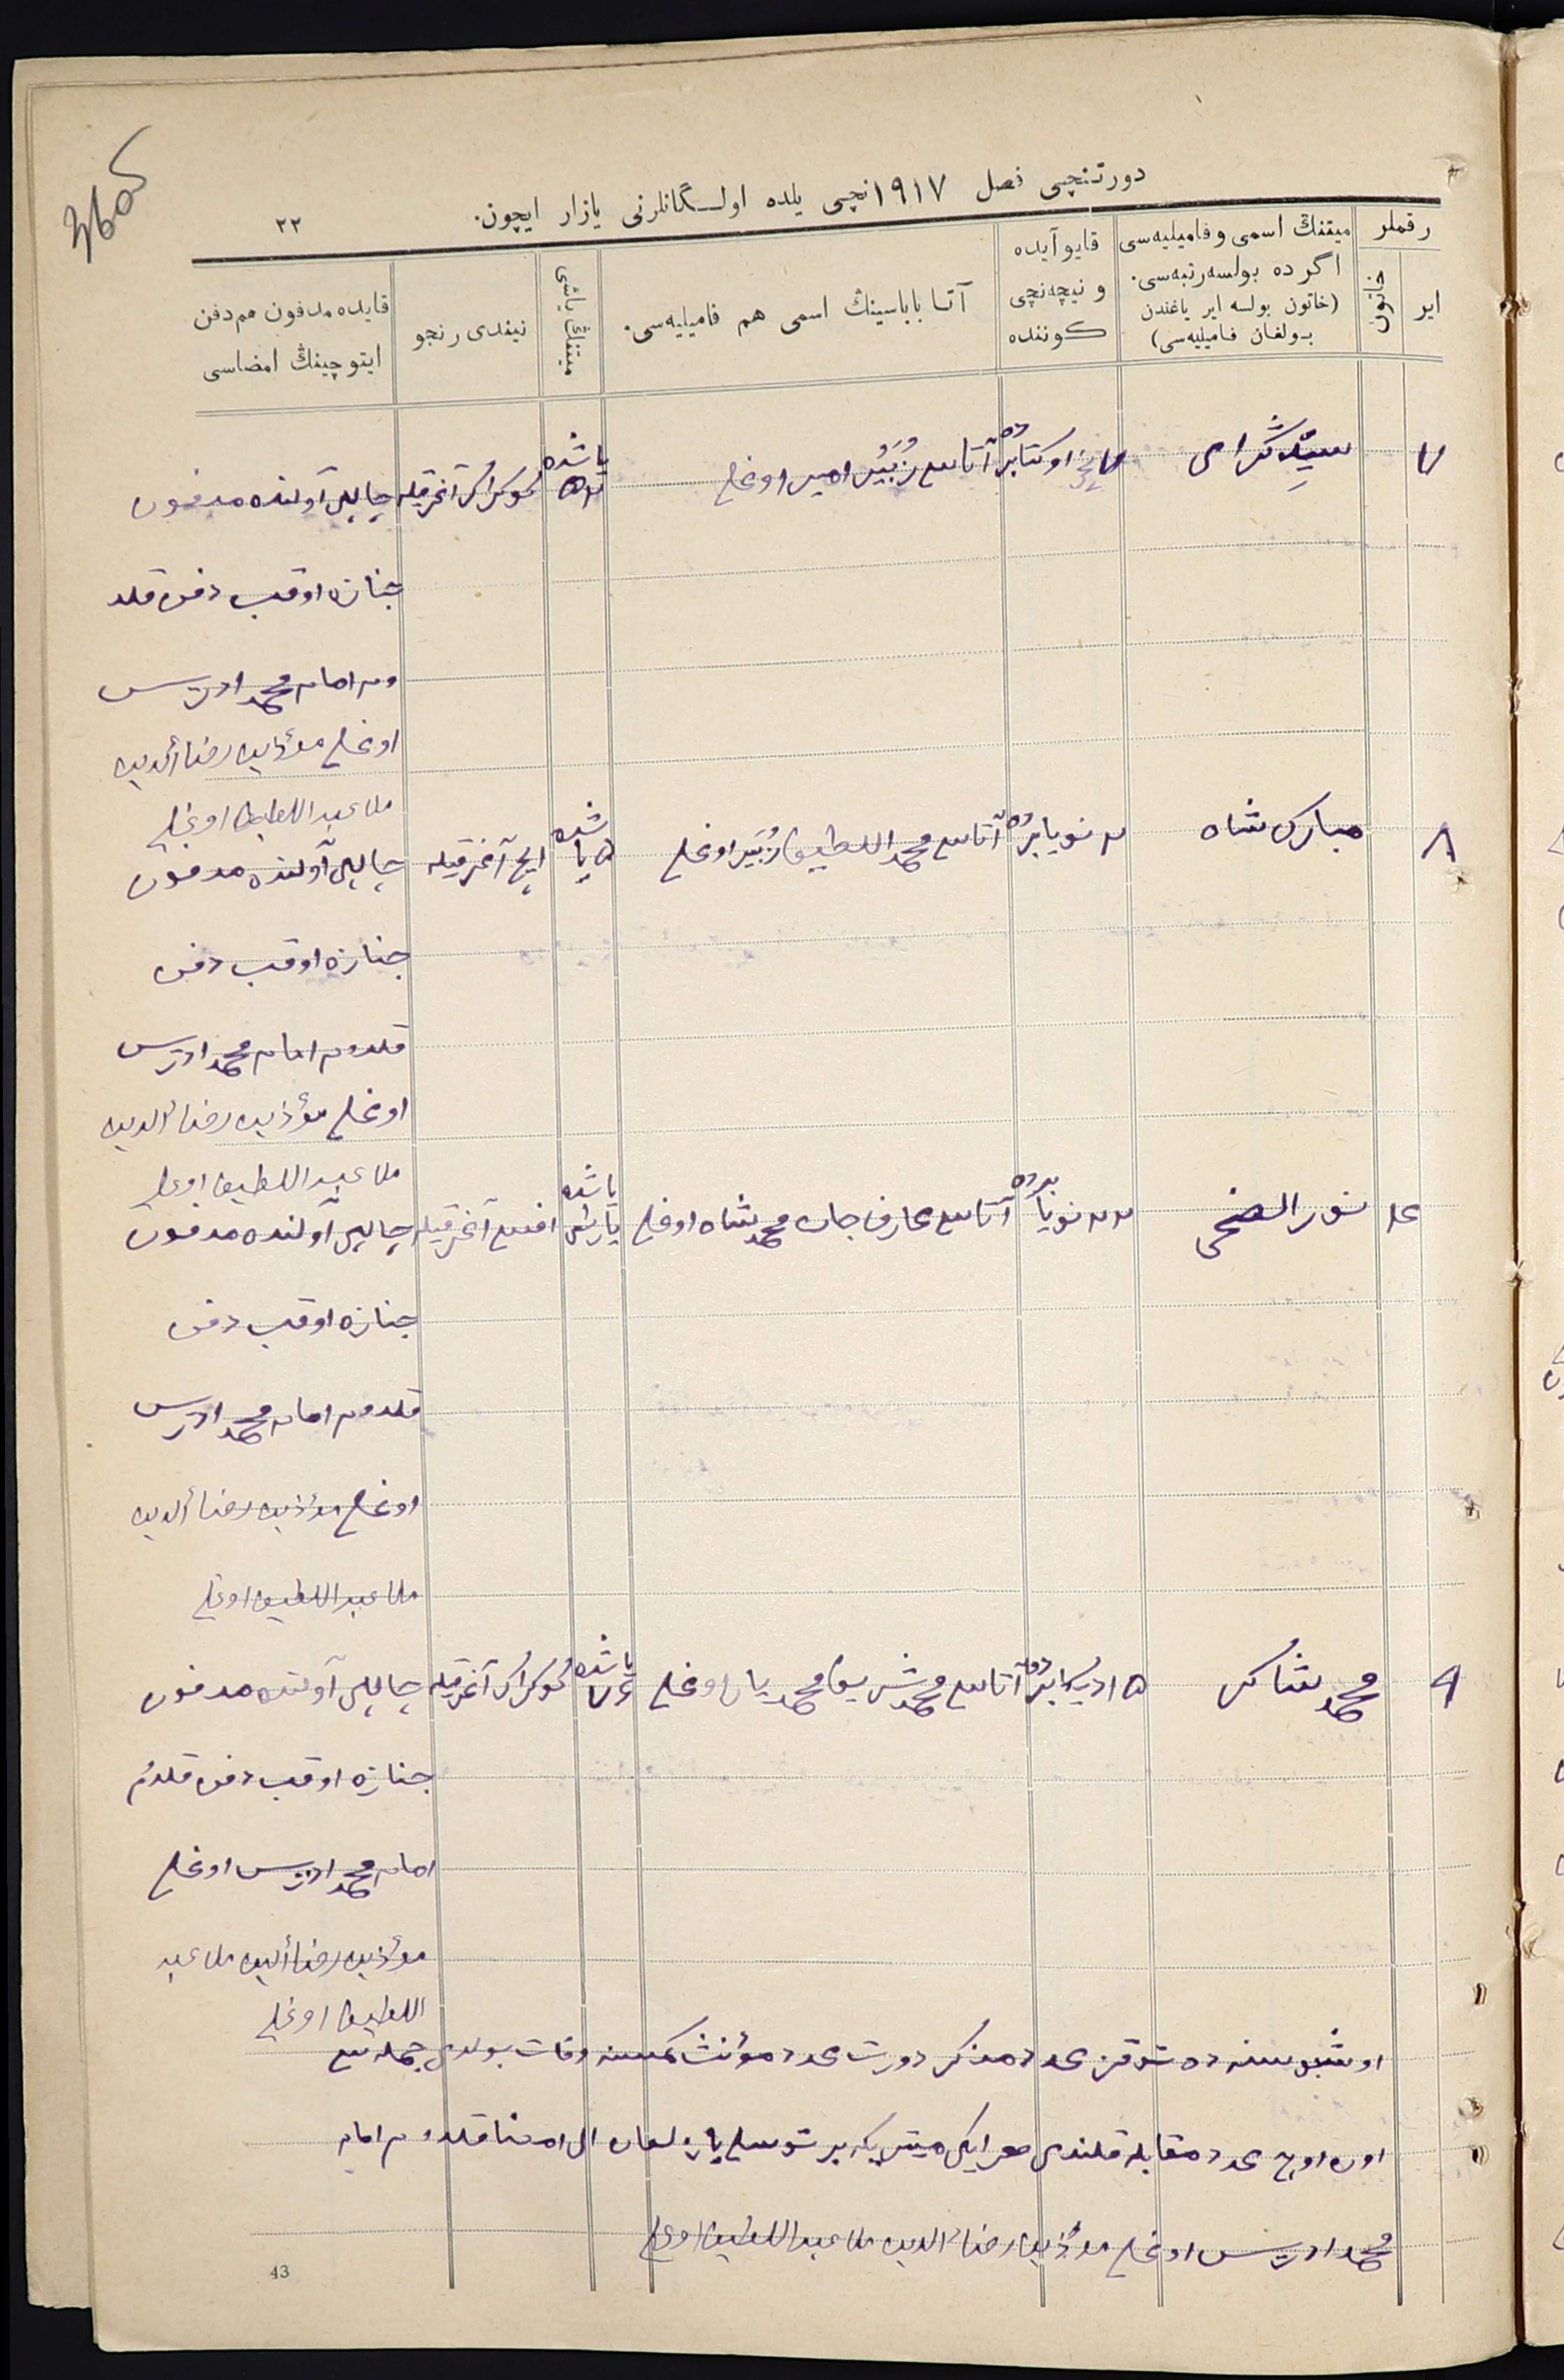 3605
دورتنچی فصل ۱۹۱۷ نچی یلده اولـگانلرنی یازار ایچون.
۲۲
رقملر
ایر
خاتون
میتنڭ اسمی و فامیلیه‌سی
اگر ده بولسه رتبه‌سی.
(خاتون بولسه ایر یاغندن
بـولغان فامیلیه‌سی)
قایو آیده
و نیچه‌نچی
کوننده
آتـا باباسینڭ اسمی هم فامیلیه‌سی.
میتنڭ یاشی
نیندی رنجو
قایده مدفون هم دفن
ایتوچینڭ امضاسی
۷
سیدگرای
اوکتابرده
آتاسی زبیر امیر اوغلی
یاشده
کوکراک آغرقیله
چاللی آولنده مدفون
جنازه اوقب دفن قلد
وم امام محمد ادریس
اوغلی مؤذین رضاألدین
ملا عبد اللطیف اوغلی
۸
مبارک شاه
نویابرده
آتاسی محمد اللطیف زبیر اوغلی
۵ یاشده
ایچ آغرقیله
چاللی آولنده مدفون
جنازه اوقب دفن
قلدوم امام محمد ادریس
اوغلی مؤذین رضاألدین
ملا عبد اللطیف اوغلی
نور الضحی
نویابرده
آتاسی عارف جان محمد شاه اوغلی
یارطی یاشده
آغرقیله
چاللی آولنده مدفون
جنازه اوقب دفن
قلدوم امام محمد ادریس
اوغلی مؤذین رضاألدین
ملا عبد اللطیف اوغلی
۹
محمد شاکر
۱۵ دیکابرده
آتاسی محمد شریف محمدیار اوغلی
۷۶ یاشده
کوکراک آغرقیله
چاللی آولنده مدفون
جنازه اوقب دفن قلدم
امام محمد ادریس اوغلی
مؤذین رضاألدین ملا عبد
اللطیف اوغلی
اوشبو سنه ده توقز عدد مذکر دورت عدد مؤنث کمسنه وفات بولدی جمله سی
اون اوچ عدد مقابله قلندی ایکی میتریکه بر توسلی یازلغان امضا قلدوم امام
محمد ادریس اوغلی مؤذین رضاألدین ملا عبد اللطیف اوغلی
43